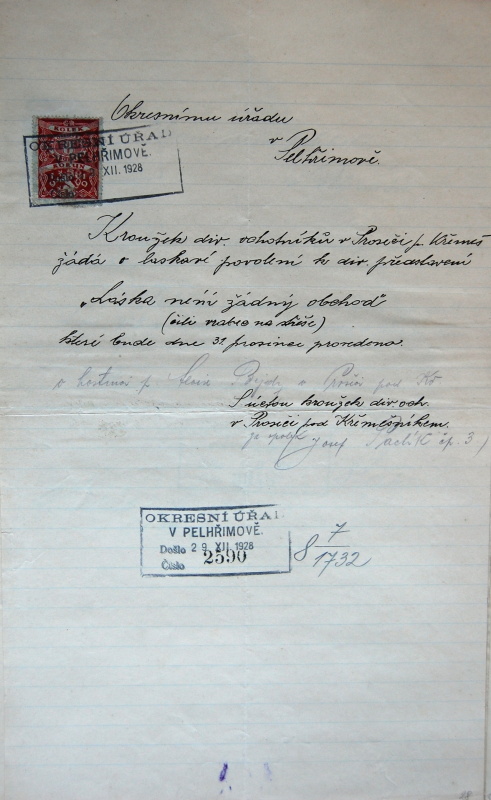 Okresnímu úřadu
v
Pelhřimově.
KOLEK
OKRESNÍ ÚŘAD
V PELHŘIMOVĚ.
XII. 1928
Kroužek div. ochotníků v Proseči p. Křemeš
žádá o laskavé povolení k div. představení
„Láska není žádný obchod"
(čili vrabec na střeše)
které bude dne 31. prosince provedeno.
v hostinci p. v Proseči pod Kř
S úctou kroužek div. och.
v Proseči pod Křemešníkem.
za spolek Josef čp. 3
OKRESNÍ ÚŘAD
V PELHŘIMOVĚ.
Došlo 29 XII. 1928
Číslo 2590
8 7/1732